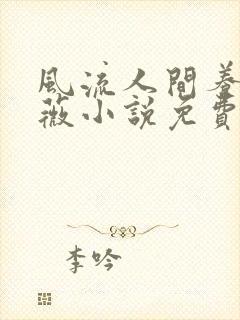 風流人間養
薇小說免費
李吟